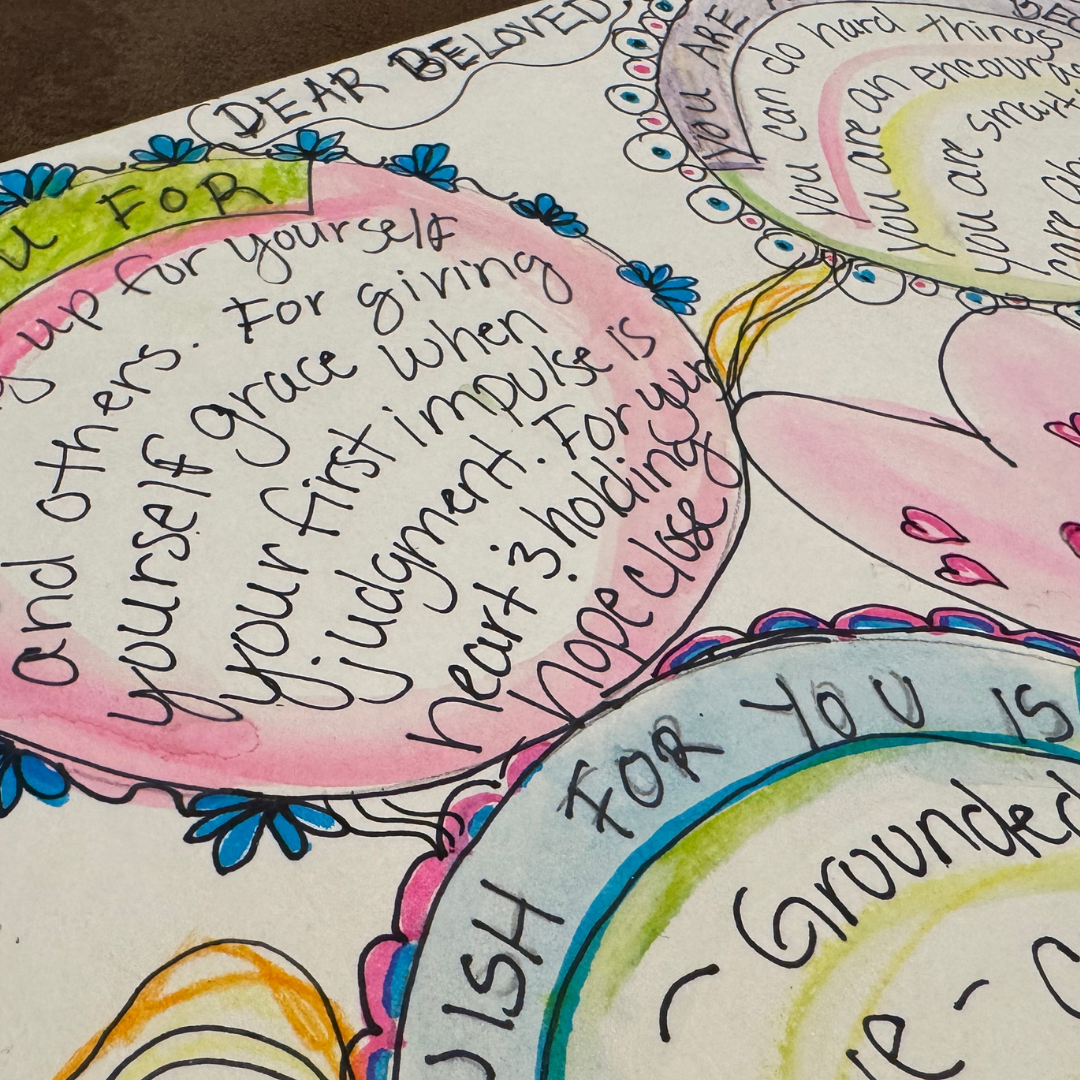 DEAR BELOVED
U FOR
up for yourself
and others. For giving
yourself grace when
your first impulse is
judgment. For your
heart & holding
hope close
YOU ARE
You can do hard things
you are an encour
you are smart
FOR YOU IS
ISH
- Grounded